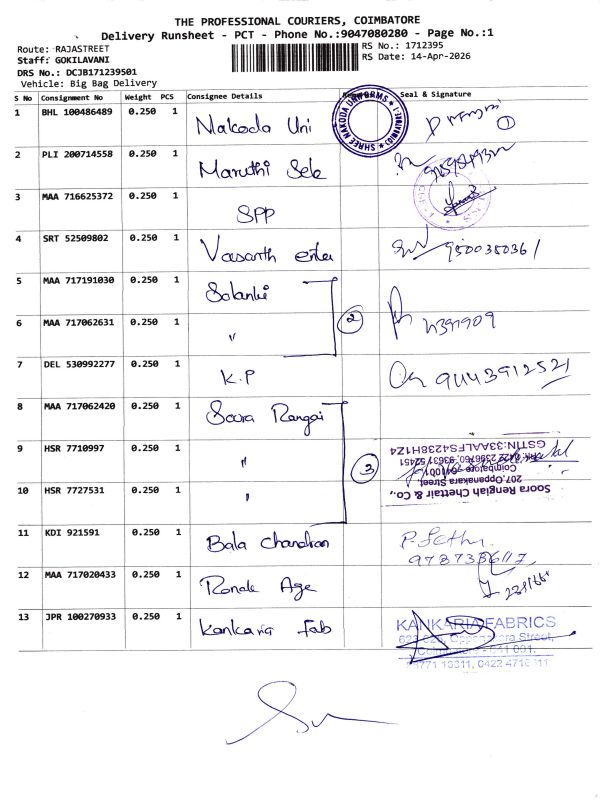 THE PROFESSIONAL COURIERS, COIMBATORE
Delivery Runsheet - PCT - Phone No.:9047080280 - Page No.:1
Route: RAJASTREET
RS No.: 1712395
Staff: GOKILAVANI
RS Date: 14-Apr-2026
DRS No.: DCJB171239501
Vehicle: Big Bag Delivery
S No Consignment No Weight PCS Consignee Details Seal & Signature
1 BHL 100486489 0.250 1 Nakoda Uni
SHREE NAKODA UNIFORMS
1
2 PLI 200714558 0.250 1 Maruthi Sele
3 MAA 716625372 0.250 1 SPP
4 SRT 52509802 0.250 1 Vasanth enter 9500350361
5 MAA 717191030 0.250 1 Solanki
2
6 MAA 717062631 0.250 1 "
7 DEL 530992277 0.250 1 K.P 9443912521
8 MAA 717062420 0.250 1 Soora Rengai
9 HSR 7710997 0.250 1 "
3
GSTIN:33AALFS4238H1Z4
Coimbatore
207,Oppanakara Street,
Soora Rengiah Chettair & Co.,
10 HSR 7727531 0.250 1 "
11 KDI 921591 0.250 1 Bala Chandran P. Sethu
12 MAA 717020433 0.250 1 Ronak Age
13 JPR 100270933 0.250 1 Kankaria fab
KANKARIA FABRICS
Street,